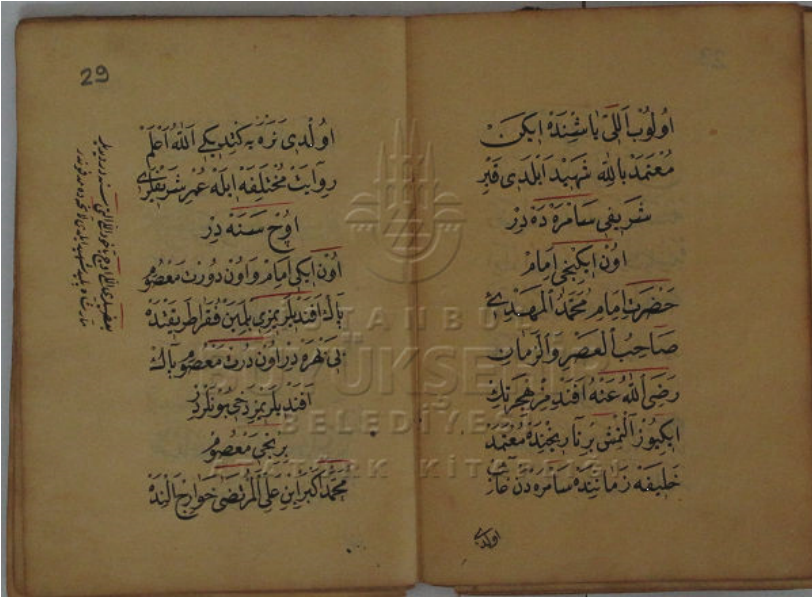 اولوب اللی یاشنده ایکن
معتمد بالله شهید ایلدی قبر
شریفی سامره ده در
اون ایکنجی امام
حضرت امام محمد المهدی
صاحب العصر والزمان
رضی الله عنه افندمز هجرتك
ایکیوز التمش بر تاریخنده معتمد
خلیفه زماننده سامره دن غائب
اولدی
29
اولدی نره یه کتدیکی الله اعلم
روایت مختلفه ایله عمر شریفلری
اوچ سنه در
اون ایکی امام و اون دورت معصوم
پاك افندیلریمزی بلمین فقرا طریقنده
بی بهره در اون درت معصوم پاك
افندیلریمز دخی بونلردر
برنجی معصوم
محمد اکبر ابن علی المرتضی خوارج النده
İSTANBUL
BÜYÜKŞEHİR
BELEDİYESİ
ATATÜRK KİTAPLIĞI